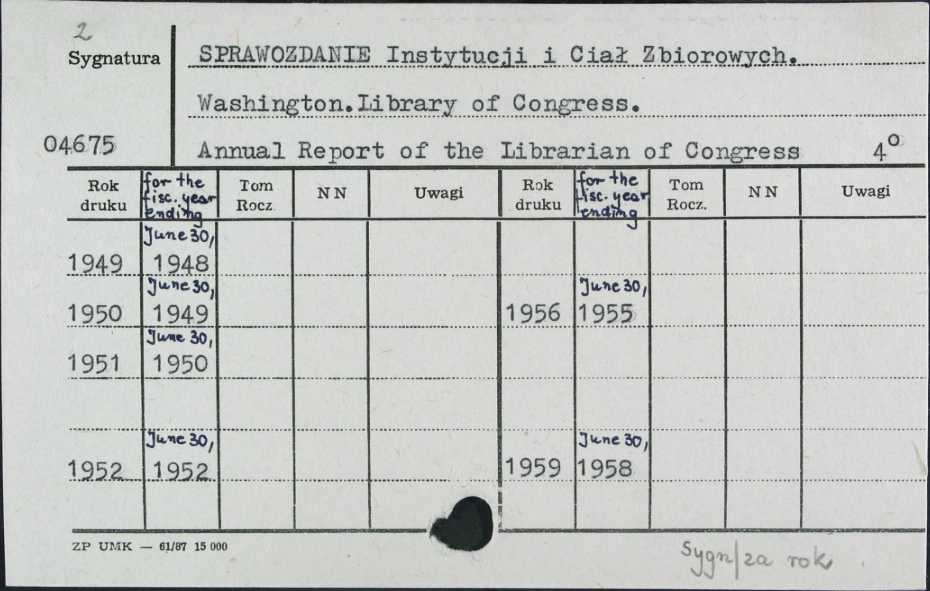 2
Sygnatura
SPRAWOZDANIE Instytucji i Ciał Zbiorowych.
Washington.Library of Congress.
04675
Annual Report of the Librarian of Congress 4°
Rok druku for the fisc. year ending Tom Rocz. NN Uwagi Rok druku for the fisc. year ending Tom Rocz. NN Uwagi
June 30,
1949 1948
June 30, June 30,
1950 1949 1956 1955
June 30,
1951 1950
June 30, June 30,
1952 1952 1959 1958
ZP UMK — 61/87 15 000
Sygn/za rok